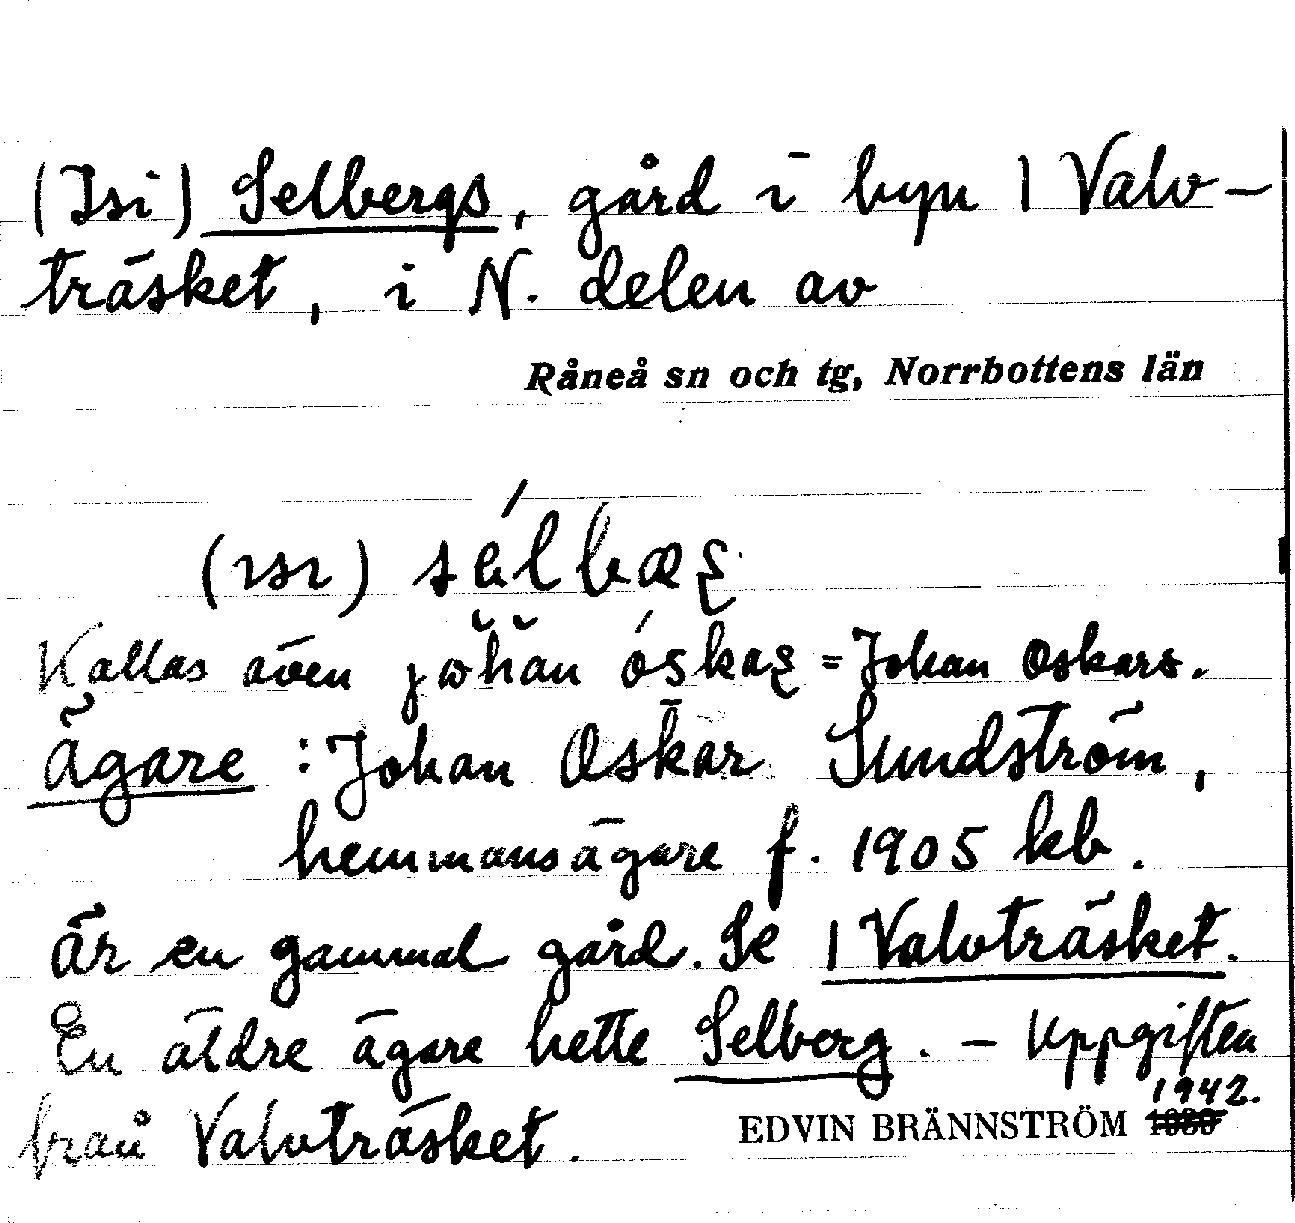 (Isi) Selbergs, gård i byn 1 Valv-
träsket, i N. delen av
Råneå sn och tg, Norrbottens län
(ısı)
Kallas även = Johan Oskars.
ägare : Johan Oskar Sundström,
hemmansägare f. 1905 kb.
är en gammal gård. Se 1 Valvträsket.
En äldre ägare hette Selberg. – Uppgiften
från Valvträsket.
EDVIN BRÄNNSTRÖM 1942.